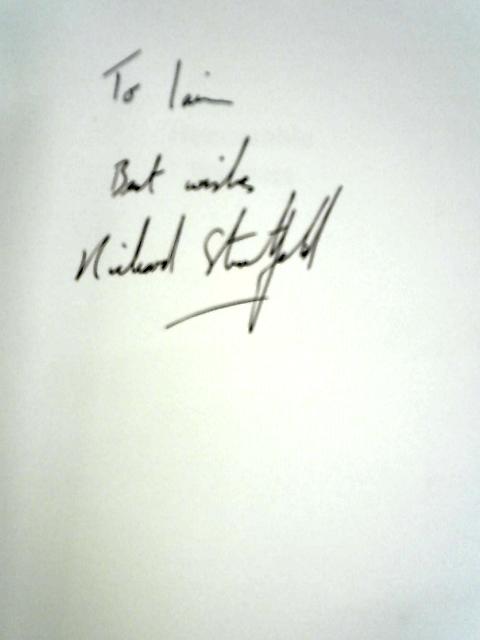 To Iain
Best wishes
Richard Stratfold